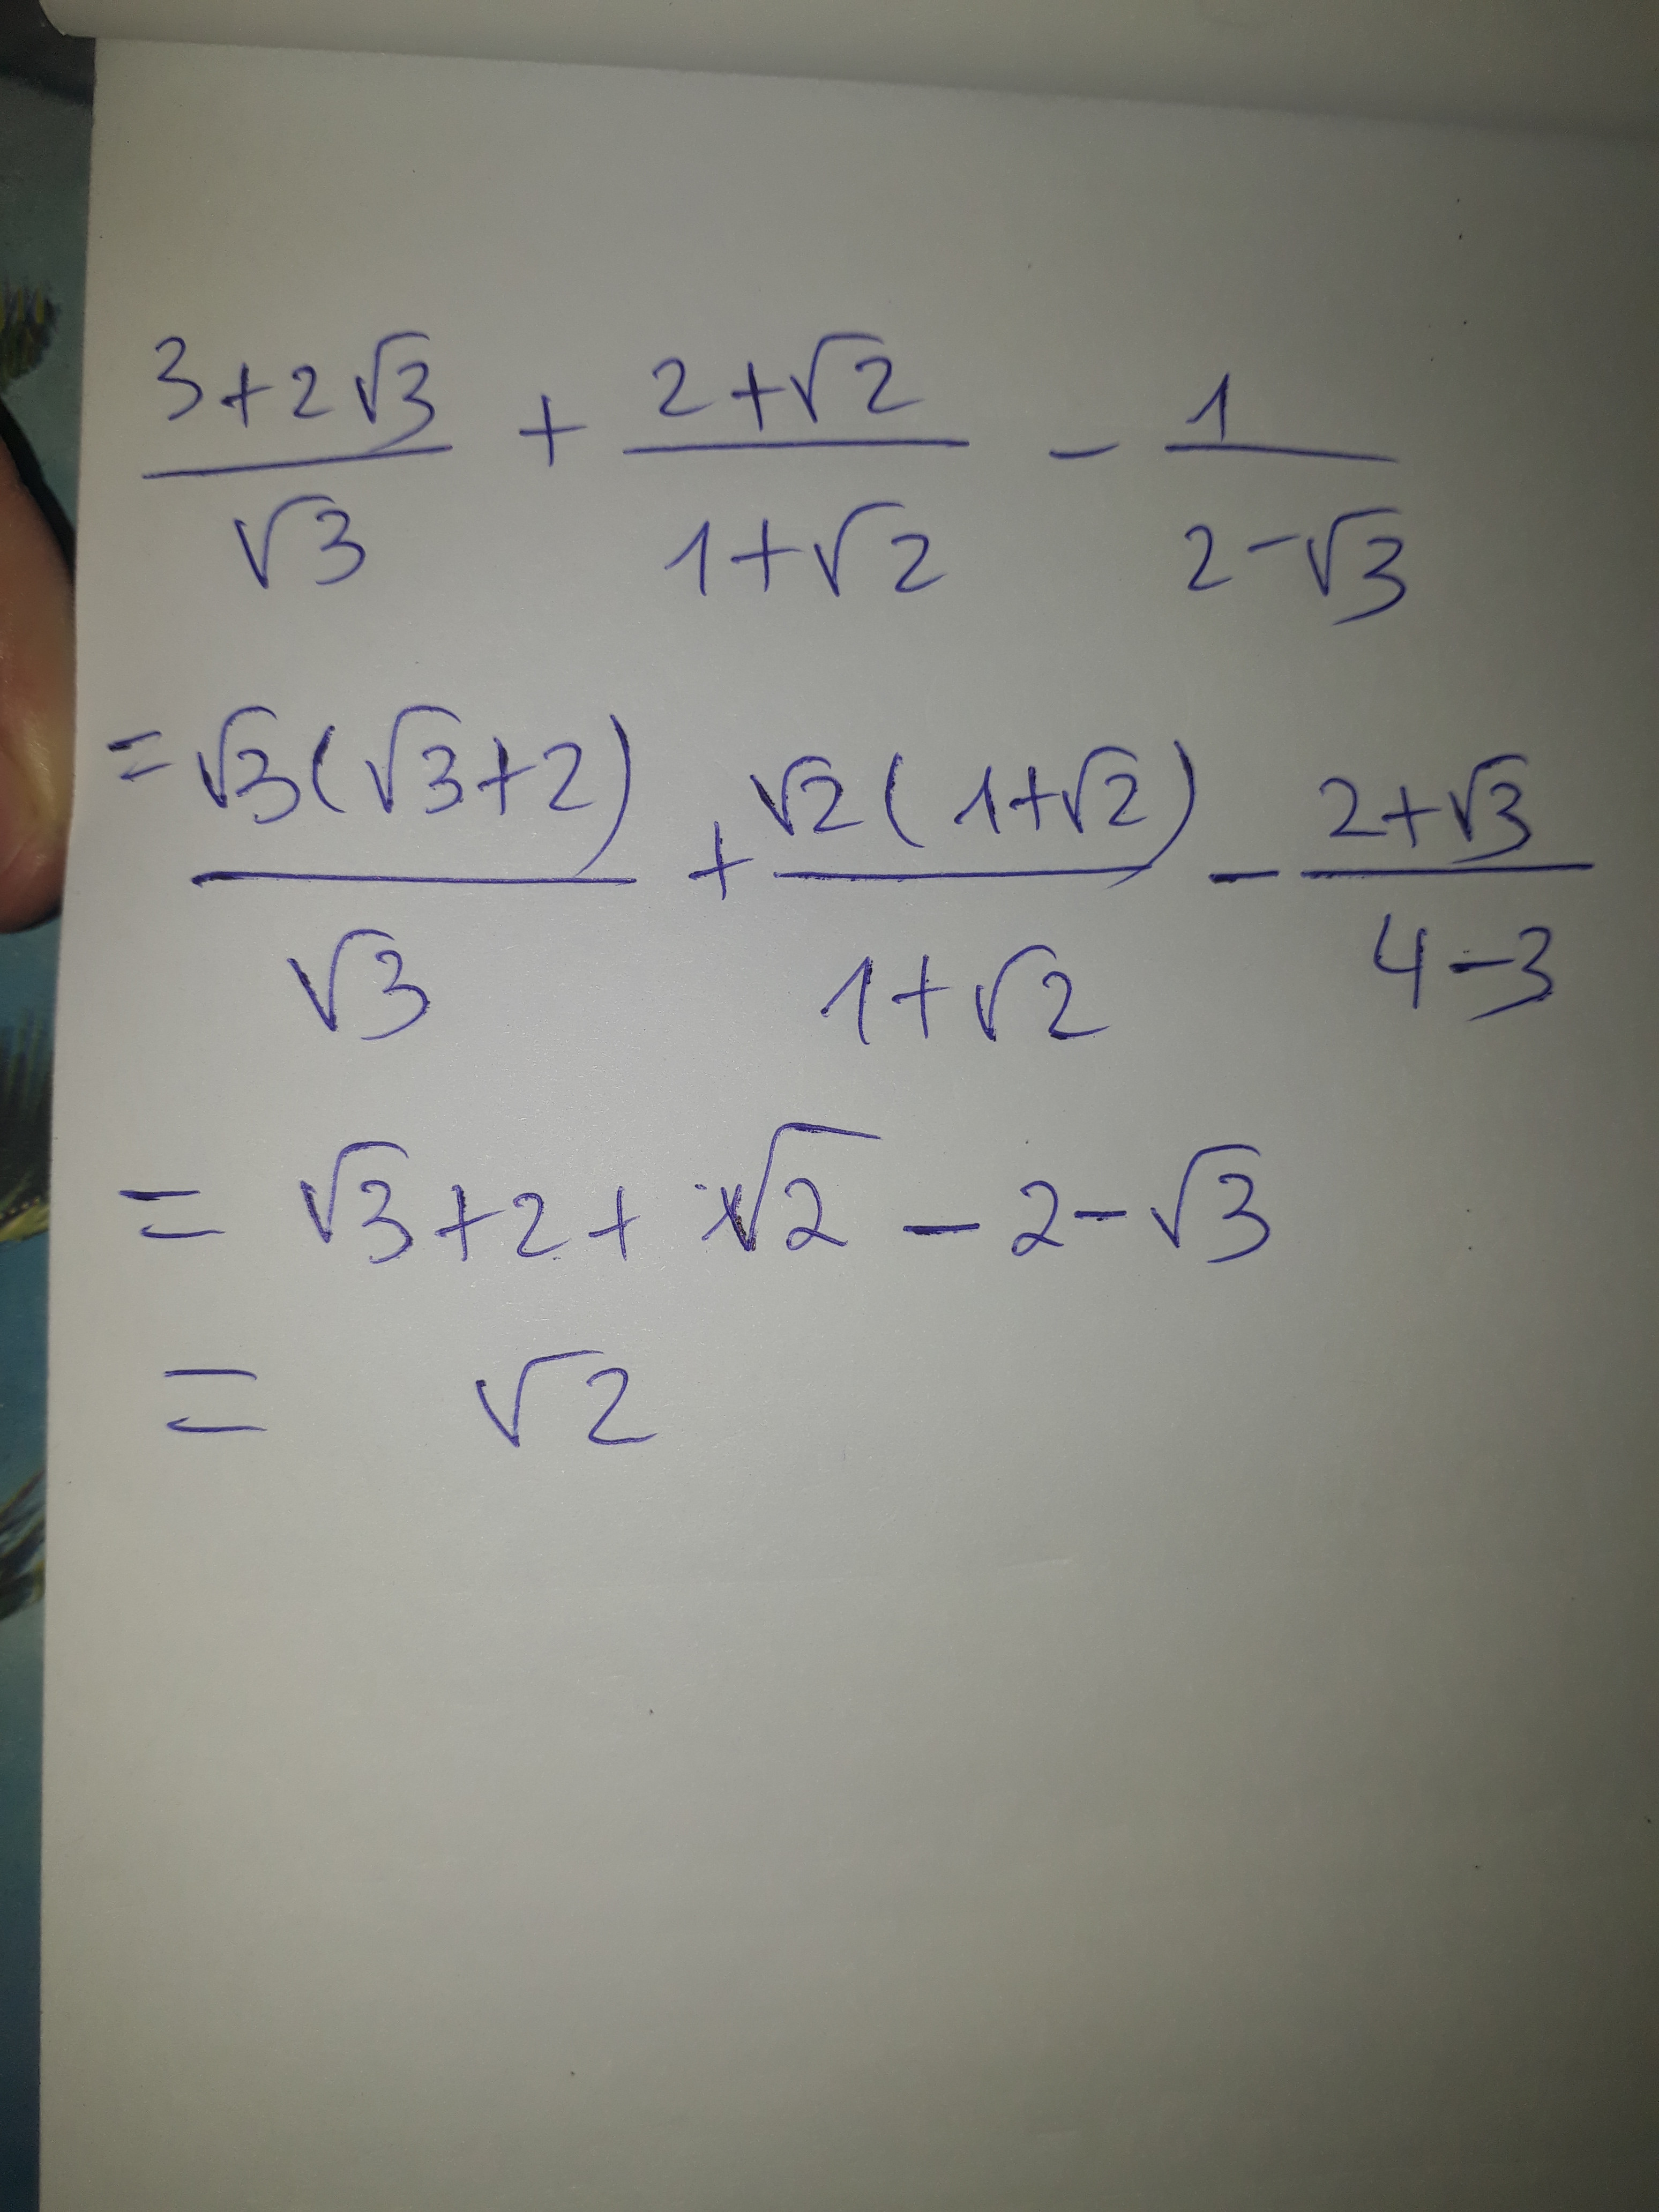 (3+2√3)/√3 + (2+√2)/(1+√2) - 1/(2-√3)
= √3(√3+2)/√3 + √2(1+√2)/(1+√2) - (2+√3)/(4-3)
= √3+2+√2-2-√3
= √2